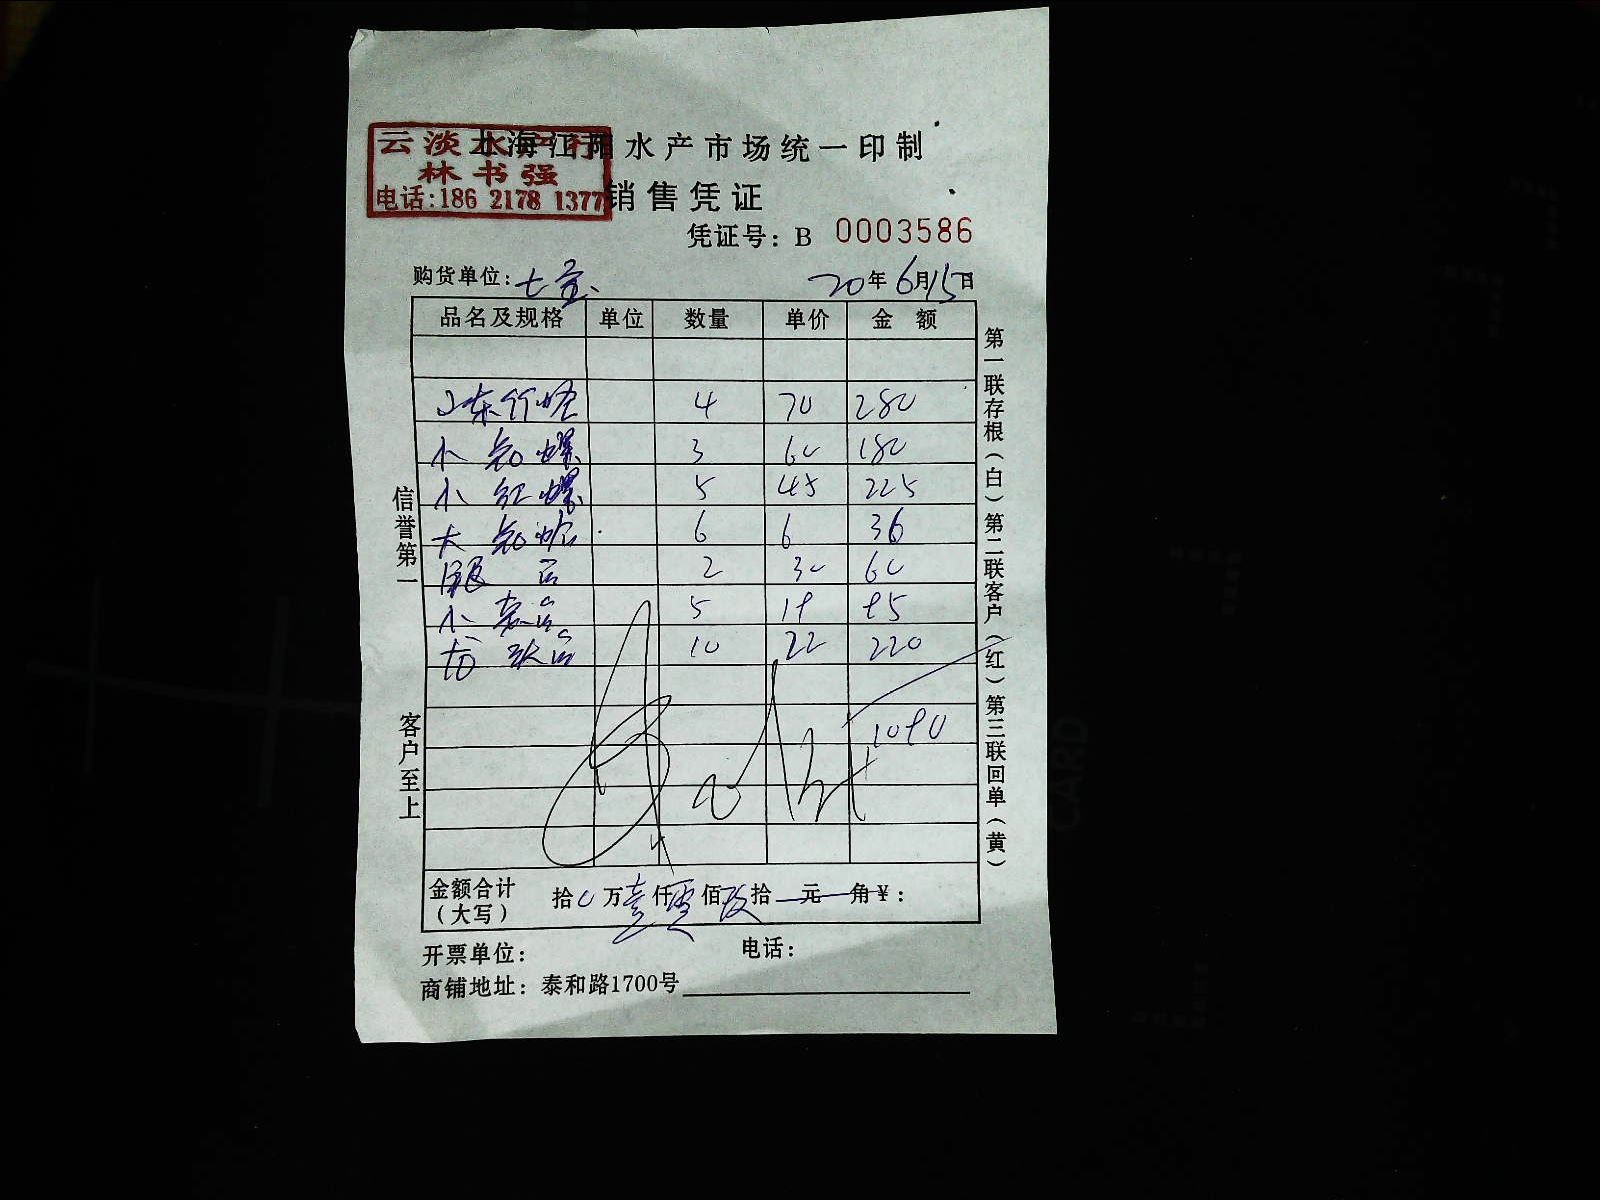 上海江阳水产市场统一印制
云淡水产行
林书强
电话:186 2178 1377
销售凭证
凭证号: B 0003586
购货单位: 七宝
20年6月15日
品名及规格 单位 数量 单价 金额
山东竹蛏 4 70 280
小 螺 3 60 180
小红螺 5 45 225
大 蛤 6 6 36
2 30 60
小 5 19 95
10 22 220
1090
金额合计(大写) 拾0万壹仟零佰玖拾元角¥:
开票单位: 电话:
商铺地址: 泰和路1700号
信誉第一 客户至上
第一联存根(白)第二联客户(红)第三联回单(黄)